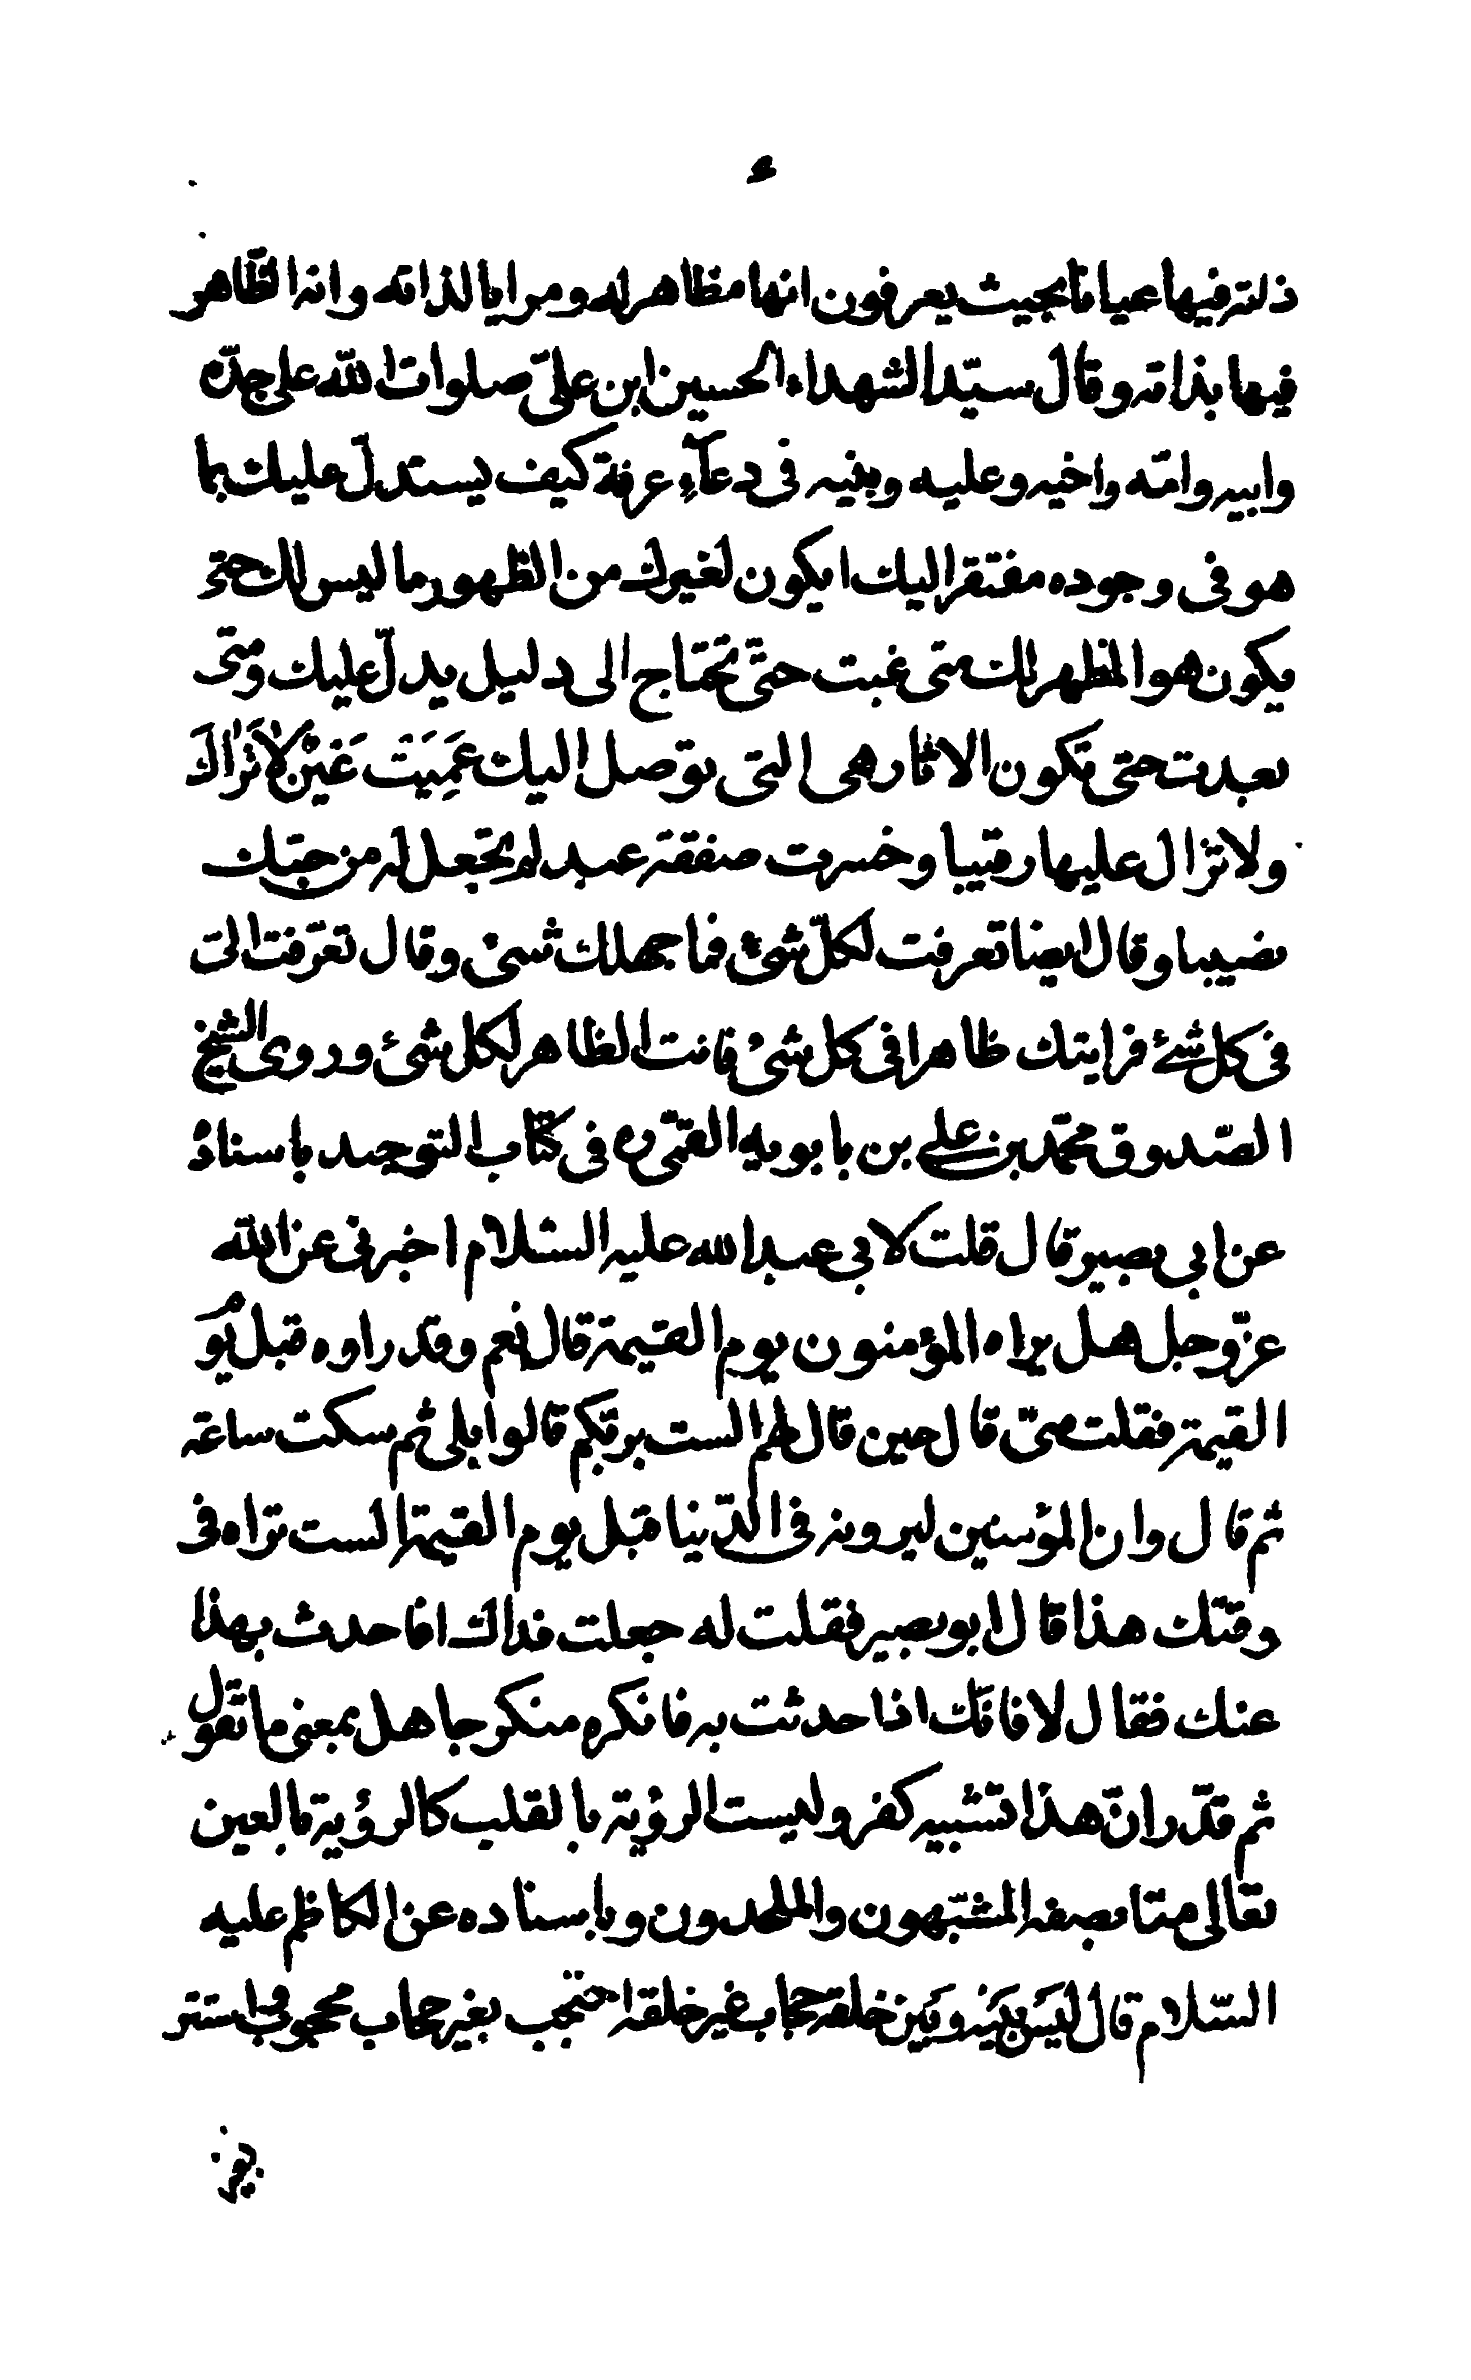 ء
ذلته فيها عيانا بحيث يعرفون انها مظاهر له ومرايا لذاته وانه الظاهر
فيها بذاته وقال سيّد الشهداء الحسين ابن علىّ صلوات اللّه على جدّه
وابيه وامّه واخيه وعليه وبنيه فى دعآءِ عرفة كيف يستدلّ عليك بما
هو فى وجوده مفتقر اليك ايكون لغيرك من الظهور ما ليس لك حتى
يكون هو المظهر لك متى غبت حتّى تحتاج الى دليل يدلّ عليك ومتى
بعدت حتى تكون الاثار هى التى توصل اليك عَمِيَتَ عَيْنٌ لاٰتَرٰاكَ
ولا تزال عليها رقيبا وخسرت صفقة عبد لم يجعل له من حبّك
نصيبا وقال ايضا تعرفت لكلّ شئ فما جهلك شئ وقال تعرّفت الىّ
فى كل شئ فرايتك ظاهرا فى كل شئ فانت الظاهر لكل شئ وروى الشيخ
الصّدوق محمّد بن على بن بابويه القمّى ره فى كتاب التوحيد باسناده
عن ابى بصير قال قلت لابى عبد الله عليه السّلام اخبرنى عن اللّه
عزّ وجل هل يراه المؤمنون يوم القيمة قال نعم وقد راوه قبل يوم
القيمة فقلت متى قال حين قال لهم الست بربّكم قالوا بلى ثم سكت ساعة
ثم قال وان المؤمنين ليرونه فى الدّنيا قبل يوم القيمة الست تراه فى
وقتك هذا قال ابو بصير فقلت له جعلت فداك افاحدث بهذا
عنك فقال لا فانّك اذا حدثت به فانكره منكر جاهل بمعنى ما تقول
ثم قدّر انّ هذا تشبيه كفر وليست الرؤية بالقلب كالرؤية بالعين
تعالى عمّا يصفه المشبّهون والملحدون وباسناده عن الكاظم عليه
السّلام قال ليَس بَينَه وبَين خلقه حجاب غير خلقه احتجب بغير حجاب محجوب واستتر
بغير